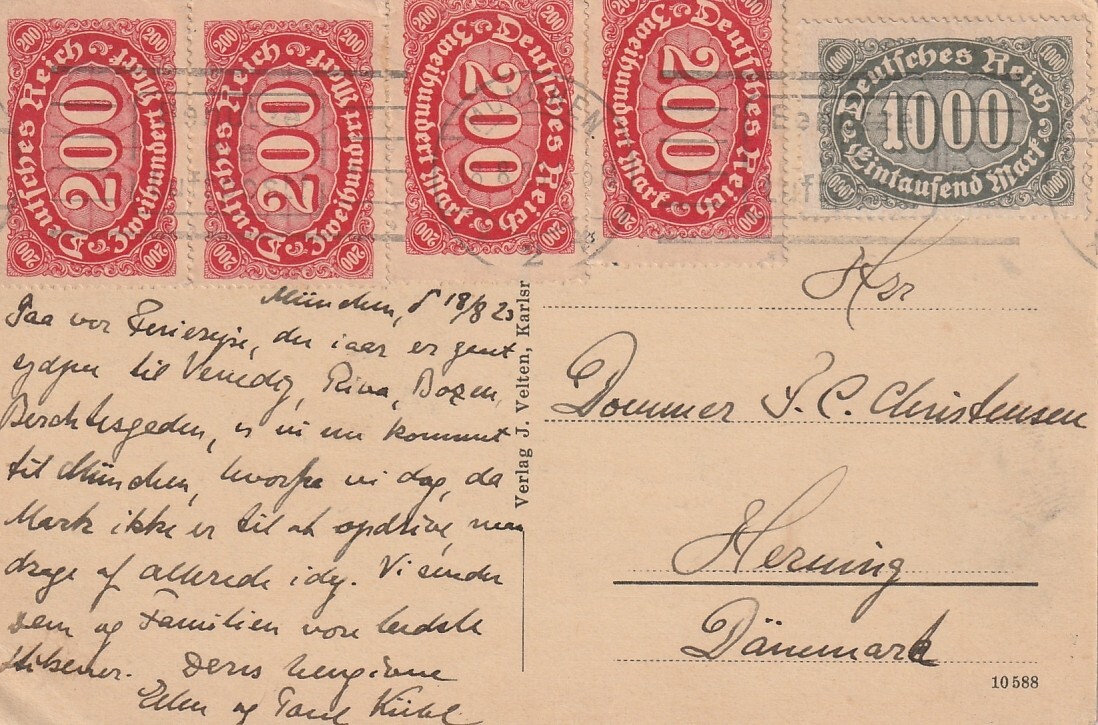 200
200
200
200
Deutsches Reich
200
Zweihundert Mark
200
200
200
200
200
Deutsches Reich
200
Zweihundert Mark
200
200
200
200
Deutsches Reich
200
Zweihundert Mark
200
200
200
200
Deutsches Reich
200
Zweihundert Mark
200
1000
1000
Deutsches Reich
1000
Eintausend Mark
1000
1000
München, d 18/8 23
Paa vor Ferierejse, der iaar er gaaet
til Venedig, Riva, Bozen,
Berchtesgaden, er vi nu kommet
til München, hvorfra vi dog, da
Mark ikke er til at opdrive, maa
drage af allerede idag. Vi sender
Dem og Familien vore bedste
Hilsener. Deres hengivne
Ellen og Poul Kühl
Verlag J. Velten, Karlsr
Herr
Dommer J. C. Christensen
Herning
Dänemark
10588